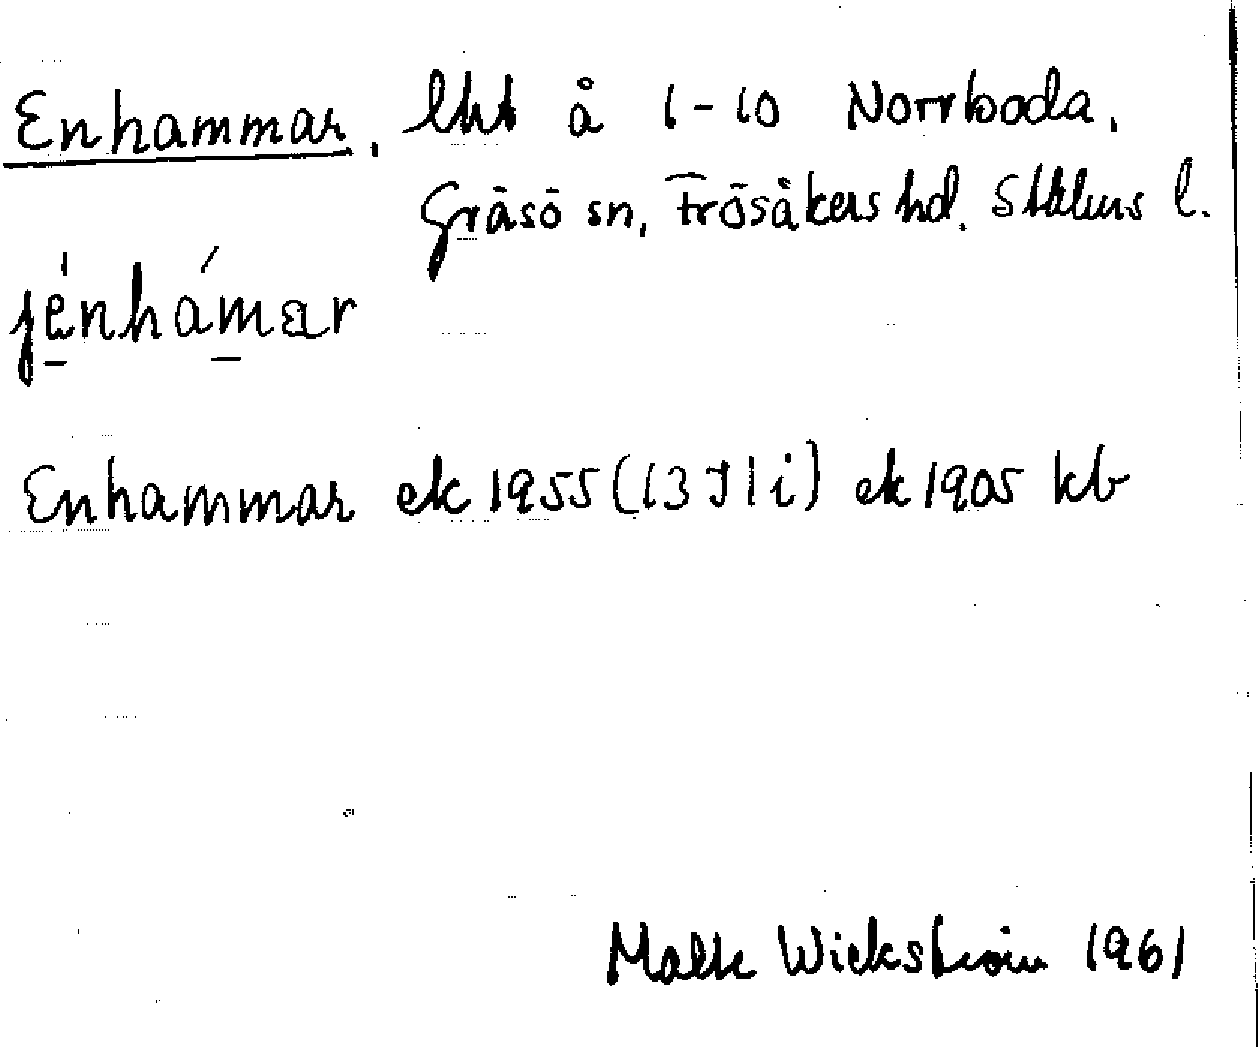 Enhammar, lht å 1-10 Norrboda,
Gräsö sn, Frösåkers hd. Sthlms l.
jénhámar
Enhammar ek 1955 (13 I 1 i) ek 1905 kb
Malte Wickström 1961